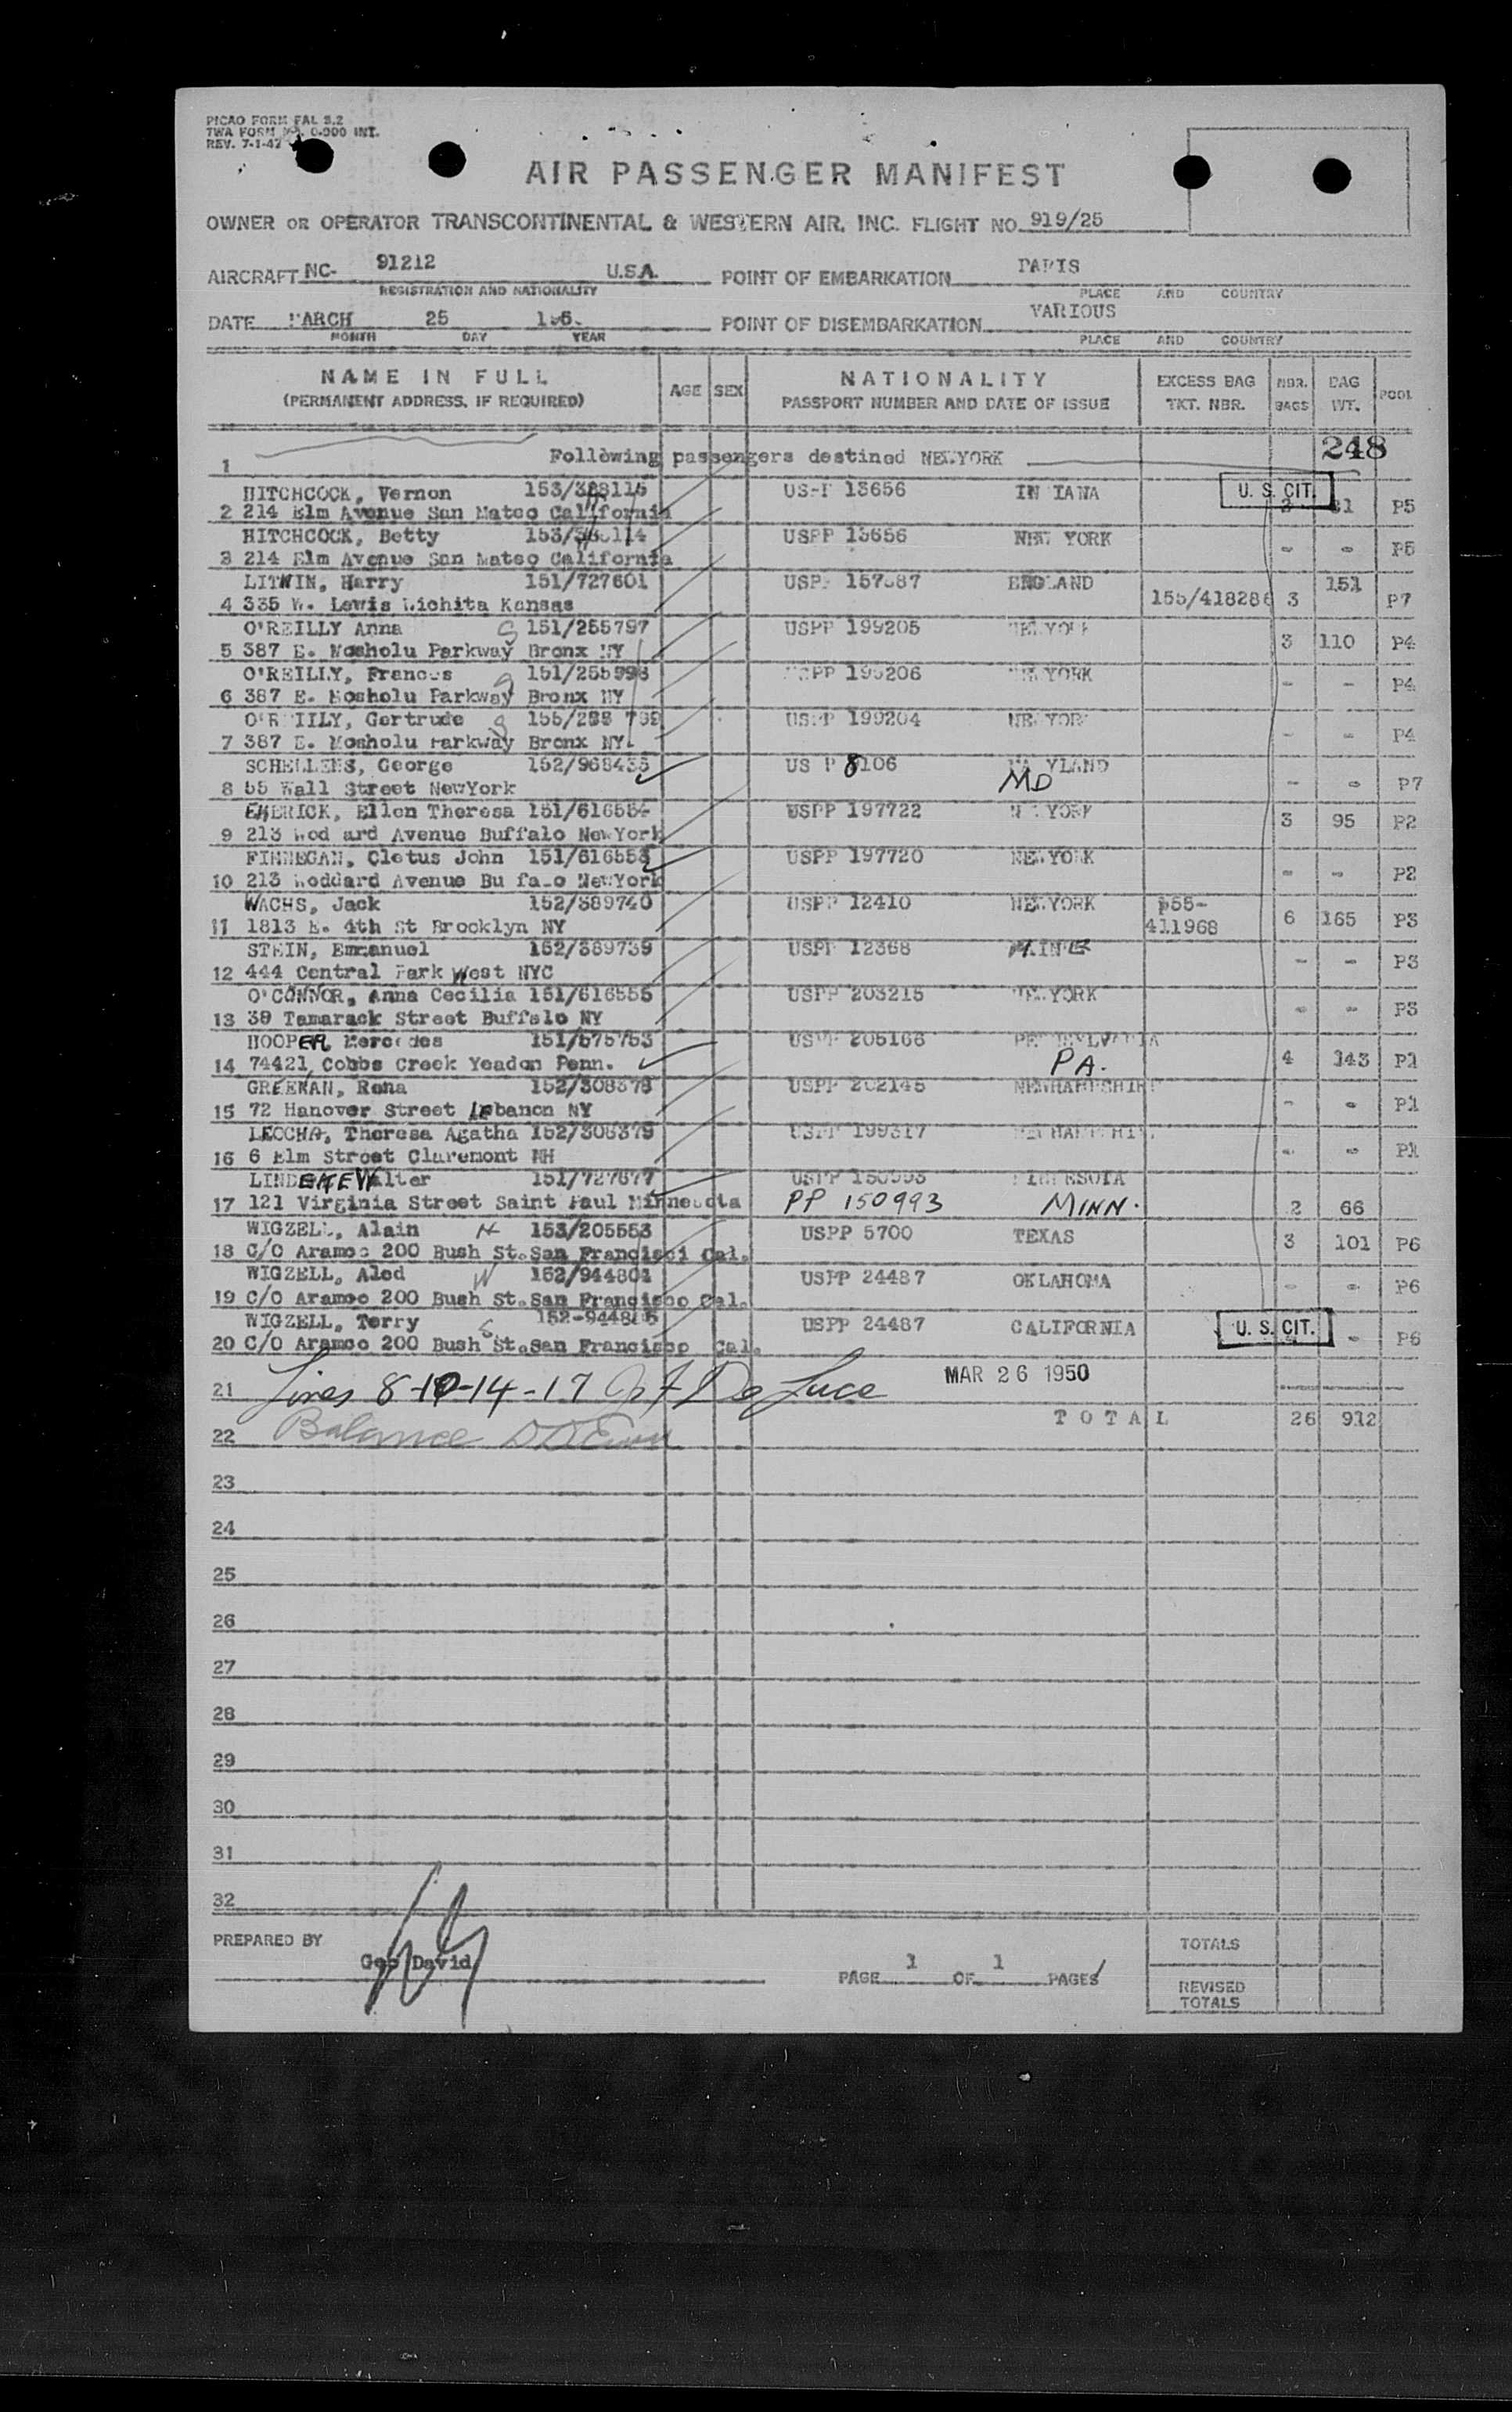 PICAO FORM FAL S.2
TWA FORM 0-900 INT.
REV. 7-1-47
AIR PASSENGER MANIFEST
OWNER OR OPERATOR TRANSCONTINENTAL & WESTERN AIR, INC. FLIGHT NO. 919/25
AIRCRAFT NC- 91212 U.S.A. POINT OF EMBARKATION PARIS
REGISTRATION AND NATIONALITY PLACE AND COUNTRY
DATE MARCH 25 POINT OF DISEMBARKATION VARIOUS
MONTH DAY YEAR PLACE AND COUNTRY
NAME IN FULL AGE SEX NATIONALITY EXCESS BAG NBR. BAG POOL
(PERMANENT ADDRESS, IF REQUIRED) PASSPORT NUMBER AND DATE OF ISSUE TKT. NBR. BAGS WT.
248
1 Following passengers destined NEWYORK
HITCHCOCK, Vernon 13656 U. S. CIT.
2 214 Elm Avenue San Mateo California P5
HITCHCOCK, Betty USPP 13656 NEW YORK
3 214 Elm Avenue San Mateo California - - P5
LITWIN, Harry 151/727601 ENGLAND 151
4 335 W. Lewis Wichita Kansas 3 P7
O'REILLY Anna 151/255797 USPP 199205
5 387 E. Mosholu Parkway Bronx NY 3 110 P4
O'REILLY, Frances
6 387 E. Mosholu Parkway Bronx NY - - P4
Gertrude 199204
7 387 E. Mosholu Parkway Bronx NY. - - P4
SCHELLENS, George 152/968435 8106 MD
8 55 Wall Street NewYork - - P7
EMERICK, Ellen Theresa 151/616554 USPP 197722
9 213 Avenue Buffalo NewYork 3 95 P2
FINNEGAN, Cletus John 151/616553 USPP 197720 NEWYORK
10 213 Woddard Avenue NewYork - - P2
WACHS, Jack 152/389740 USPP 12410 NEWYORK 155-
11 1813 E. 4th St Brooklyn NY 411968 6 165 P3
STEIN, Emmanuel 152/389739 USPP 12368 MAINE
12 444 Central Park West NYC - - P3
O'CONNOR, Anna Cecilia 151/616555 USPP 203215
13 39 Tamarack Street Buffalo NY - - P3
HOOPER, Mercedes 151/575753 205166 PA.
14 74421, Cobbs Creek Yeadon Penn. 4 143 P1
GREENAN, Rena 152/308378 USPP 202145
15 72 Hanover Street Lebanon NY - - P1
LEOCHA, Theresa Agatha 152/308379 199317
16 6 Elm Street Claremont NH - - P1
Walter 151/727677
17 121 Virginia Street Saint Paul Minnesota PP 150993 MINN. 2 66
WIGZELL, Alain 153/205553 USPP 5700 TEXAS
18 C/O Aramco 200 Bush St.San Francisci Cal. 3 101 P6
WIGZELL, Aled 152/944804 USPP 24487 OKLAHOMA
19 C/O Aramco 200 Bush St.San Francisco Cal. - - P6
WIGZELL, Terry USPP 24487 CALIFORNIA U. S. CIT.
20 C/O Aramco 200 Bush St.San Francisco Cal. - P6
21 Lines 8-10-14-17 De Luce MAR 26 1950
22 Balance TOTAL 26 912
23
24
25
26
27
28
29
30
31
32
PREPARED BY Geo David TOTALS
PAGE 1 OF 1 PAGES REVISED TOTALS